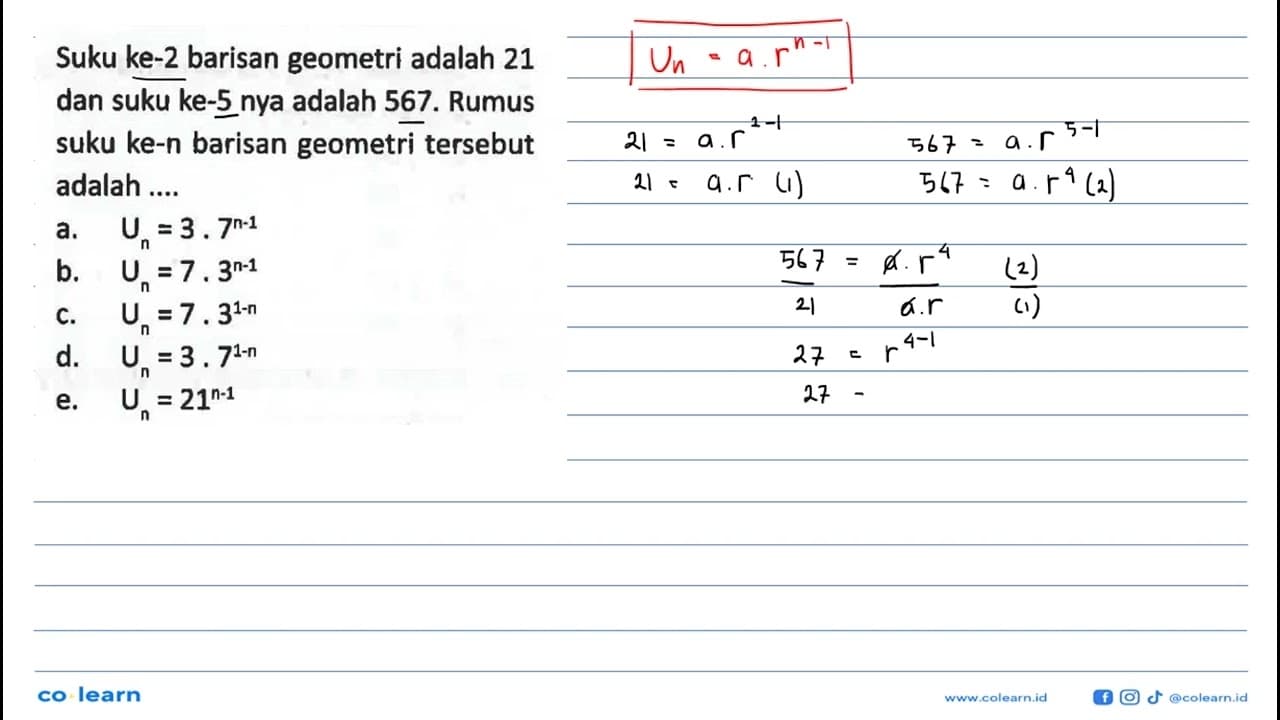 Suku ke-2 barisan geometri adalah 21
dan suku ke-5 nya adalah 567. Rumus
suku ke-n barisan geometri tersebut
adalah ....
a. Uₙ = 3 . 7ⁿ⁻¹
b. Uₙ = 7 . 3ⁿ⁻¹
c. Uₙ = 7 . 3¹⁻ⁿ
d. Uₙ = 3 . 7¹⁻ⁿ
e. Uₙ = 21ⁿ⁻¹
Uₙ = a . rⁿ⁻¹
21 = a . r²⁻¹
21 = a . r (1)
567 = a . r⁵⁻¹
567 = a . r⁴ (2)
567 = a . r⁴ (2)
21 a . r (1)
27 = r⁴⁻¹
27 -
co learn
www.colearn.id
@colearn.id